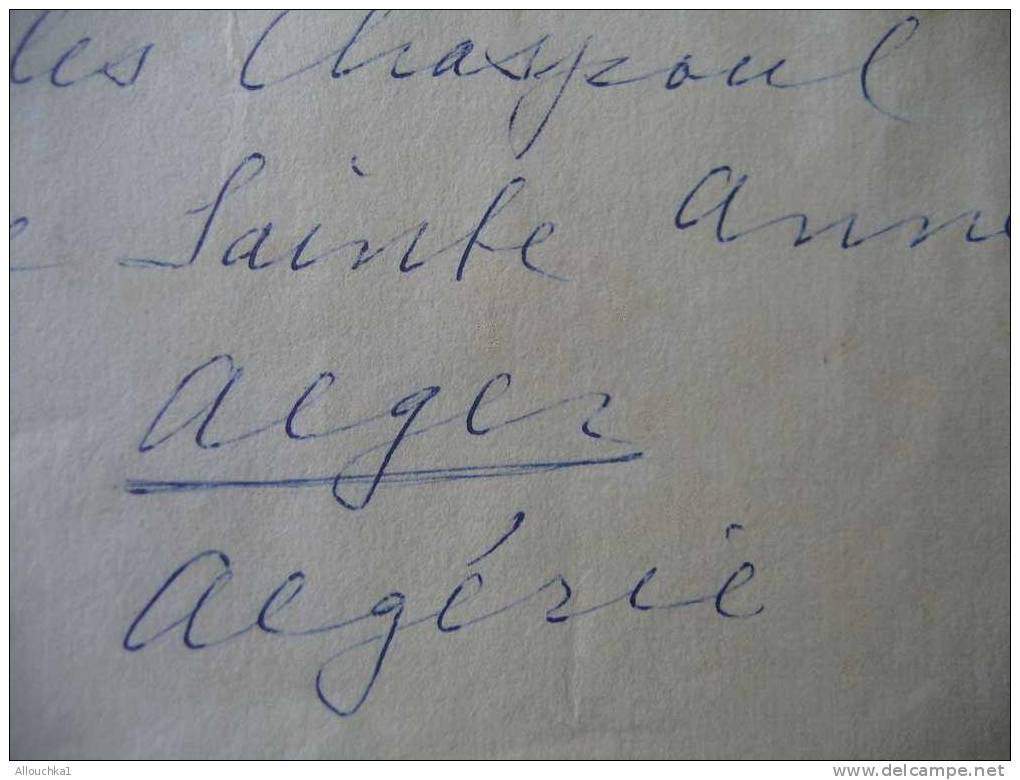 les Chaspoul
e Sainte Anne
Alger
Algérie
Allouchka1
www.delcampe.net